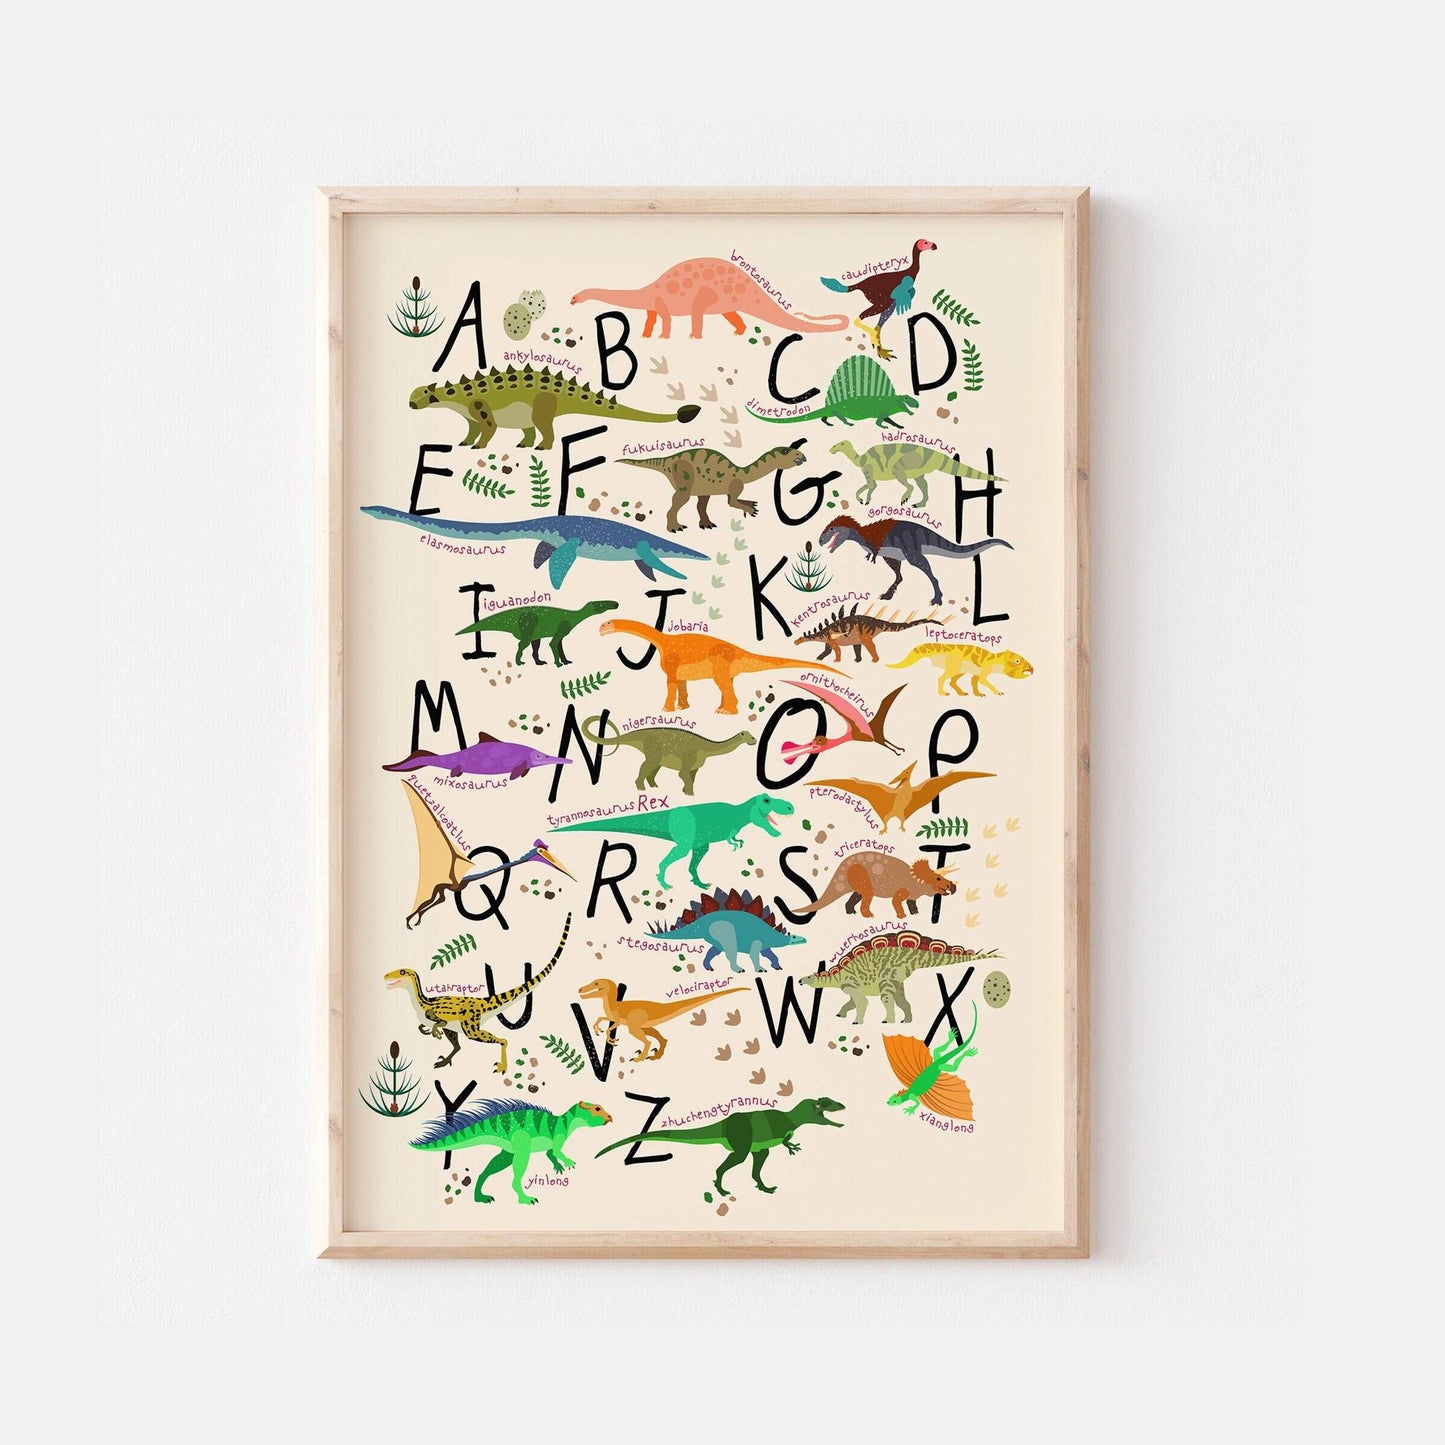 brontosaurus
caudipteryx
A
B
C
D
ankylosaurus
dimetrodon
E
F
fukuisaurus
G
hadrosaurus
H
elasmosaurus
gorgosaurus
I
iguanodon
J
jobaria
K
kentrosaurus
L
leptoceratops
M
mixosaurus
N
nigersaurus
O
ornithocheirus
P
pterodactylus
quetzalcoatlus
Q
tyrannosaurus Rex
R
S
stegosaurus
triceratops
T
utahraptor
U
V
velociraptor
W
wuerhosaurus
X
xianglong
Y
yinlong
Z
zhuchengtyrannus